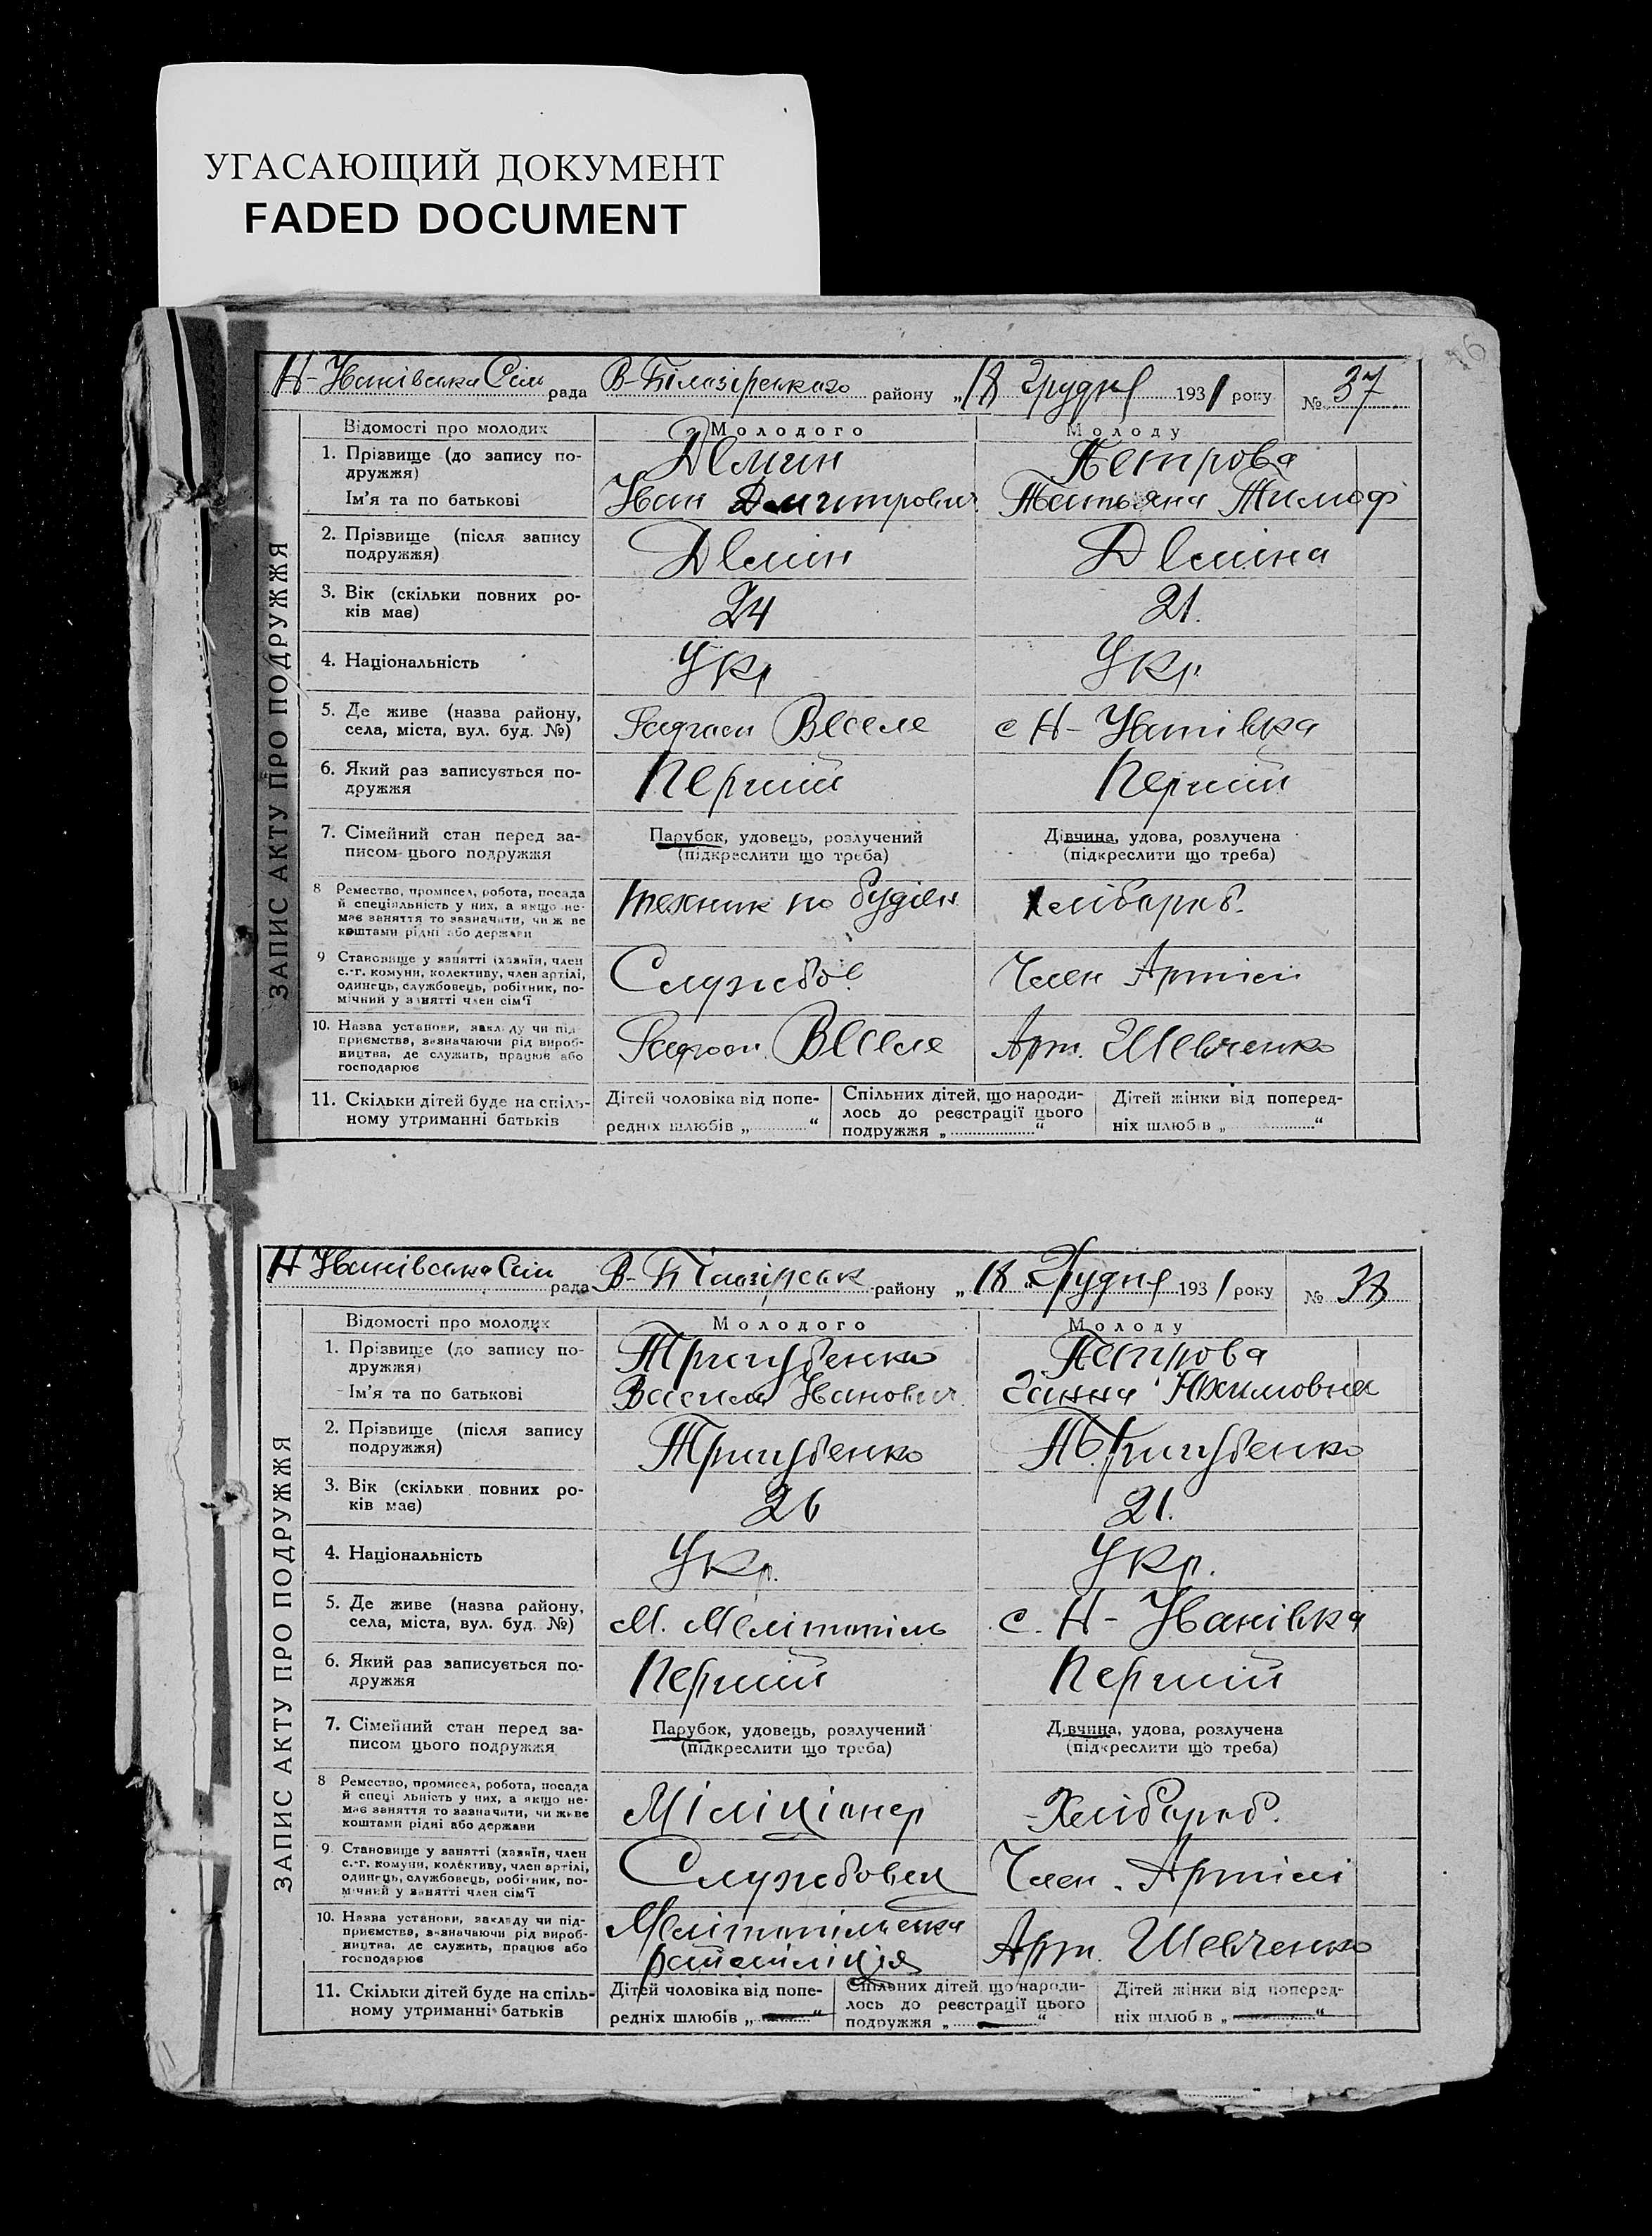 УГАСАЮЩИЙ ДОКУМЕНТ
FADED DOCUMENT
Н-Іванівська Сіл рада В-Білозірського району „18 Грудня 1931 року № 37
ЗАПИС АКТУ ПРО ПОДРУЖЖЯ
Відомості про молодих Молодого Молоду
1. Прізвище (до запису по-
дружжя) Демин Петрова
Ім'я та по батькові Іван Дмитрович Татьяна Тимоф
2. Прізвище (після запису
подружжя) Демін Деміна
3. Вік (скільки повних ро-
ків має) 24 21.
4. Національність Укр Укр.
5. Де живе (назва району,
села, міста, вул. буд. №) Радгосп Веселе с Н-Іванівка
6. Який раз записується по-
дружжя Перший Перший
7. Сімейний стан перед за-
писом цього подружжя
Парубок, удовець, розлучений
(підкреслити що треба)
Дівчина, удова, розлучена
(підкреслити що треба)
8 Ремество, промисел, робота, посада
й спеціяльність у них, а якщо не-
має заняття то зазначити, чи ж ве
коштами рідні або держави
техник по будівн Хлібороб.
9 Становище у занятті (хазяїн, член
с.-г. комуни, колективу, член артілі,
одинець, службовець, робітник, по-
мічний у занятті член сім'ї
Службов. Член Артілі
10. Назва установи, закладу чи під-
приємства, зазначаючи рід вироб-
ництва, де служить, працює або
господарює
Радгосп. Веселе Арт. Шевченко
11. Скільки дітей буде на спіль-
ному утриманні батьків
Дітей чоловіка від попе-
редніх шлюбів „............“
Спільних дітей, що народи-
лось до реєстрації цього
подружжя „............“
Дітей жінки від поперед-
ніх шлюб в „............“
Н Іванівська Сіл рада В-Білозірськ району „18 “ Грудня 1931 року № 38
ЗАПИС АКТУ ПРО ПОДРУЖЖЯ
Відомості про молодих Молодого Молоду
1. Прізвище (до запису по-
дружжя) Тригубенко Петрова
Ім'я та по батькові Василь Іванович Ганна Якимовна
2. Прізвище (після запису
подружжя) Тригубенко Тригубенко
3. Вік (скільки повних ро-
ків має) 26 21.
4. Національність Укр. Укр.
5. Де живе (назва району,
села, міста, вул. буд. №) М. Мелітопіль с. Н-Іванівка
6. Який раз записується по-
дружжя Перший Перший
7. Сімейний стан перед за-
писом цього подружжя
Парубок, удовець, розлучений
(підкреслити що треба)
Дівчина, удова, розлучена
(підкреслити що треба)
8 Ремество, промисел, робота, посада
й спеці льність у них, а якщо не-
має заняття то зазначити, чи живе
коштами рідні або держави
Міліціонер Хлібороб.
9. Становище у занятті (хазяїн, член
с.-г. комуни, колективу, член артілі,
одинець, службовець, робітник, по-
мічний у занятті член сім'ї
Службовец Член. Артілі
10. Назва установи, закладу чи під-
приємства, зазначаючи рід вироб-
ництва, де служить, працює або
господарює
Мелітопільська
Арт. Шевченко
11. Скільки дітей буде на спіль-
ному утриманні батьків
Дітей чоловіка від попе-
редніх шлюбів „............“
Спільних дітей, що народи-
лось до реєстрації цього
подружжя „............“
Дітей жінки від поперед-
ніх шлюб в „............“